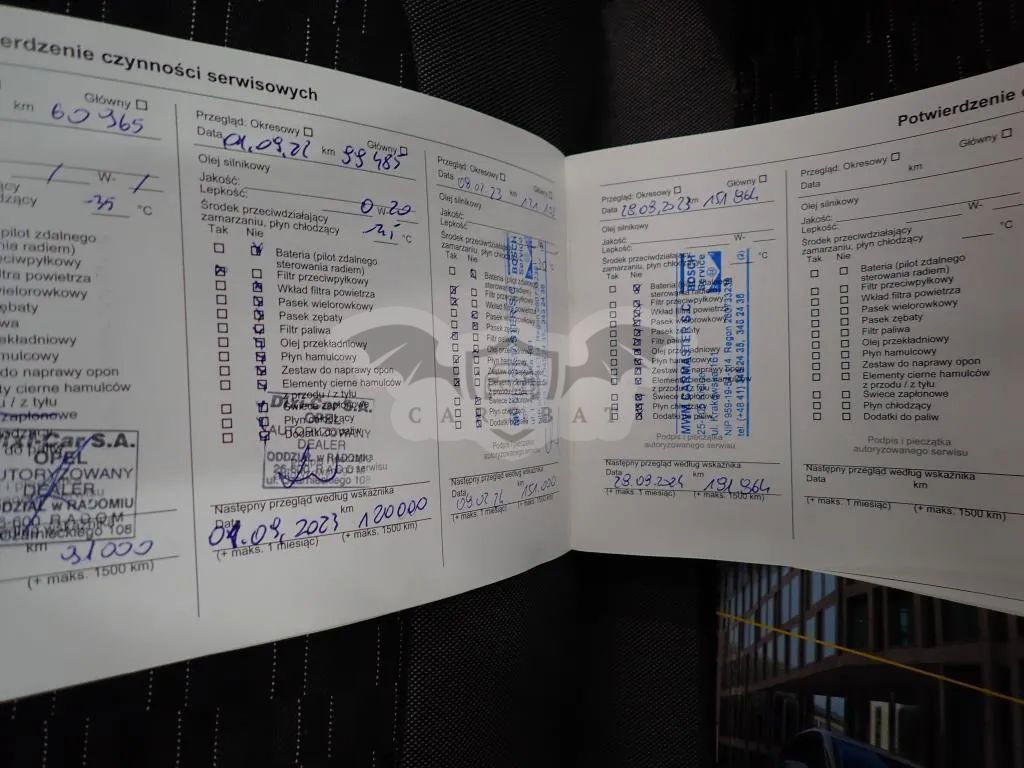 erdzenie czynności serwisowych
Główny
km 60 965
W-
°C
pilot zdalnego
nia radiem)
ciwpyłkowy
filtra powietrza
wielorowkowy
ębaty
wa
ekładniowy
mulcowy
do naprawy opon
cierne hamulców
u / z tyłu
zapłonowe
Car S.A.
OPEL
AUTORYZOWANY
DEALER
ODDZIAŁ W RADOMIU
km 91000
(+ maks. 1500 km)
Przegląd: Okresowy Główny
Data 01.09.22 km 99 485
Olej silnikowy
Jakość:
Lepkość: 0 W- 20
Środek przeciwdziałający
zamarzaniu, płyn chłodzący °C
Tak Nie
Bateria (pilot zdalnego
sterowania radiem)
Filtr przeciwpyłkowy
Wkład filtra powietrza
Pasek wielorowkowy
Pasek zębaty
Filtr paliwa
Olej przekładniowy
Płyn hamulcowy
Zestaw do naprawy opon
Elementy cierne hamulców
z przodu / z tyłu
Świece zapłonowe
OPEL
AUTORYZOWANY
DEALER
ODDZIAŁ W RADOMIU
Następny przegląd według wskaźnika
Data km
01.09.2023 120000
(+ maks. 1 miesiąc) (+ maks. 1500 km)
Przegląd: Okresowy Główny
Data km
Olej silnikowy
Jakość:
Lepkość:
Środek przeciwdziałający
zamarzaniu, płyn chłodzący
Tak Nie
Bateria (pilot zdalnego
sterowania radiem)
Filtr przeciwpyłkowy
Wkład filtra powietrza
Pasek wielorowkowy
Pasek zębaty
Filtr paliwa
Olej przekładniowy
Płyn hamulcowy
Zestaw do naprawy opon
Świece zapłonowe
Płyn chłodzący
Dodatki do paliw
BOSCH
Service
Podpis i pieczątka
autoryzowanego serwisu
Następny przegląd według wskaźnika
Data km
151000
(+ maks. 1 miesiąc) (+ maks. 1500 km)
CAR BAT
Potwierdzenie
Przegląd: Okresowy Główny
Data 28.09.2023 km 151 964
Olej silnikowy
Jakość:
Lepkość: W-
Środek przeciwdziałający
zamarzaniu, płyn chłodzący °C
Tak Nie
Bateria (pilot zdalnego
sterowania radiem)
Filtr przeciwpyłkowy
Wkład filtra powietrza
Pasek wielorowkowy
Pasek zębaty
Filtr paliwa
Olej przekładniowy
Płyn hamulcowy
Zestaw do naprawy opon
Elementy cierne hamulców
z przodu / z tyłu
Świece zapłonowe
Płyn chłodzący
Dodatki do paliw
BOSCH
Service
Podpis i pieczątka
autoryzowanego serwisu
Następny przegląd według wskaźnika
Data km
28.09.2024 191 964
(+ maks. 1 miesiąc) (+ maks. 1500 km)
Przegląd: Okresowy Główny
Data km
Olej silnikowy
Jakość:
Lepkość: W-
Środek przeciwdziałający
zamarzaniu, płyn chłodzący °C
Tak Nie
Bateria (pilot zdalnego
sterowania radiem)
Filtr przeciwpyłkowy
Wkład filtra powietrza
Pasek wielorowkowy
Pasek zębaty
Filtr paliwa
Olej przekładniowy
Płyn hamulcowy
Zestaw do naprawy opon
Elementy cierne hamulców
z przodu / z tyłu
Świece zapłonowe
Płyn chłodzący
Dodatki do paliw
Podpis i pieczątka
autoryzowanego serwisu
Następny przegląd według wskaźnika
Data km
(+ maks. 1 miesiąc) (+ maks. 1500 km)